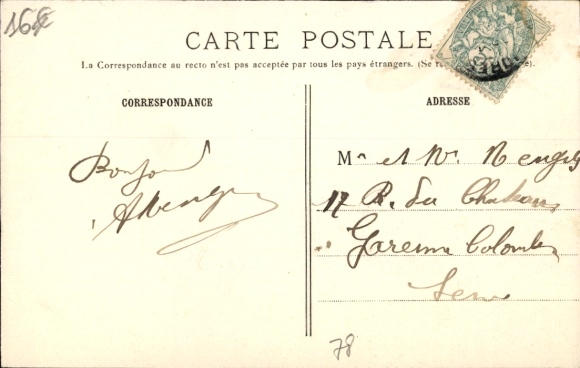 16€
CARTE POSTALE
La Correspondance au recto n'est pas acceptée par tous les pays étrangers. (Se
CORRESPONDANCE
ADRESSE
Bonjour
Mr et Mme
17 R. du Chateau
Garenne Colombes
Seine
78